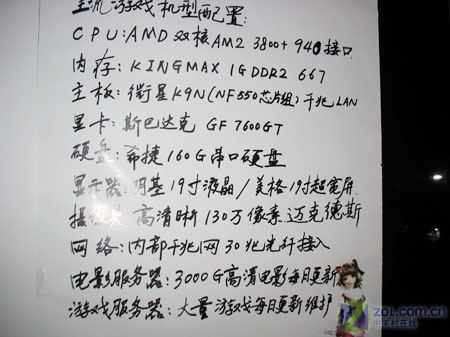 主流游戏机型配置:
CPU:AMD双核AM2 3800+ 940接口
内存: KINGMAX 1G DDR2 667
主板: 微星K9N(NF550芯片组)千兆LAN
显卡: 斯巴达克 GF 7600GT
硬盘: 希捷160G串口硬盘
显示器: 明基19寸液晶/美格19寸超宽屏
摄像头 高清晰130万像素 迈克德斯
网络: 内部千兆网30兆光纤接入
电影服务器: 3000G高清电影每日更新
游戏服务器: 大量游戏每日更新维护
zol.com.cn
中关村在线